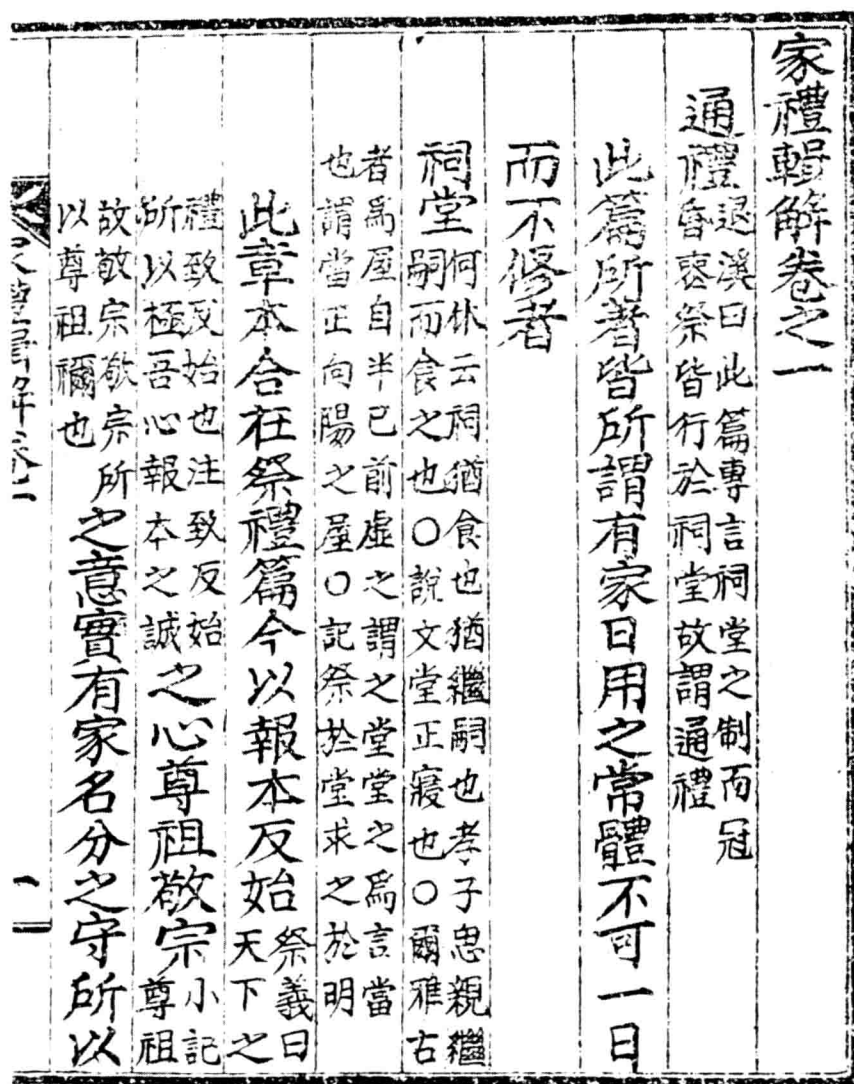 家禮輯解卷之一
通禮
退溪曰此篇專言祠堂之制而冠
昏喪祭皆行於祠堂故謂通禮
此篇所著皆所謂有家日用之常體不可一日
而不修者
祠堂
何休云祠猶食也猶繼嗣也孝子思親繼
嗣而食之也〇說文堂正寢也〇爾雅古
者爲屋自半已前虛之謂之堂堂之爲言當
也謂當正向陽之屋〇記祭於堂求之於明
此章本合在祭禮篇今以報本反始
祭義曰
天下之
禮致反始也注致反始
所以極吾心報本之誠
之心尊祖敬宗
小記
尊祖
故敬宗敬宗所
以尊祖禰也
之意實有家名分之守所以
家禮輯解卷一
一